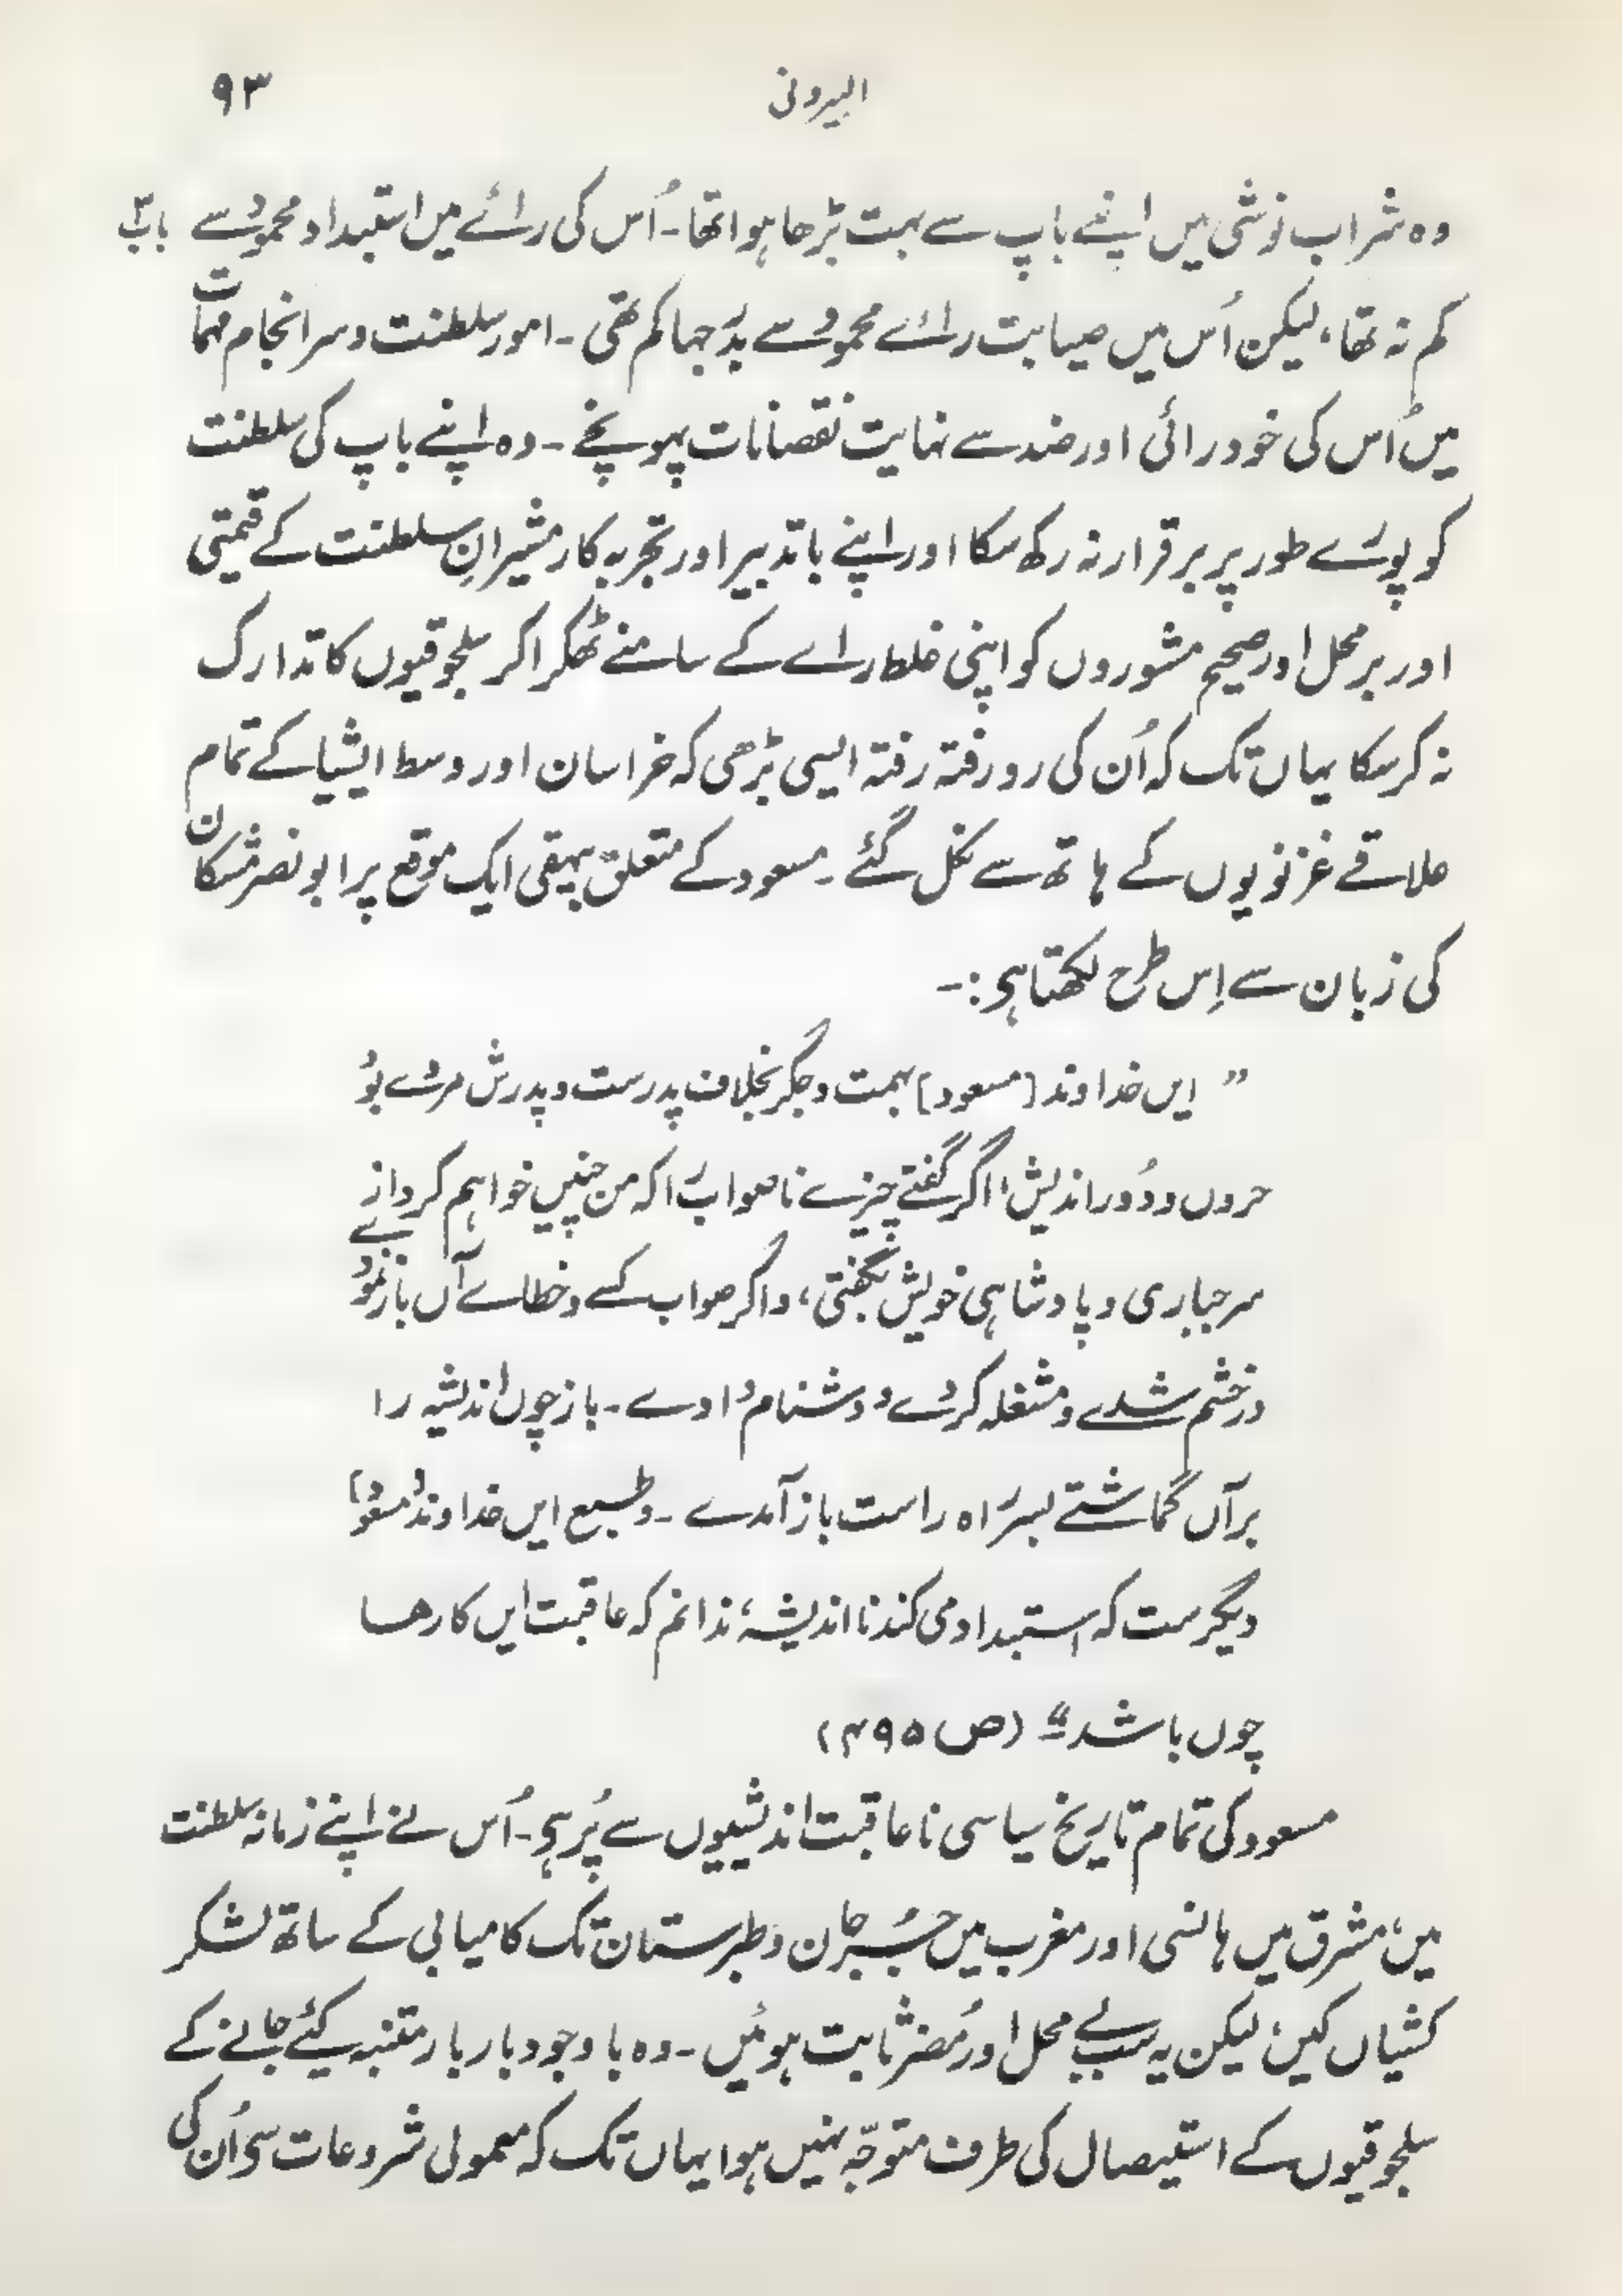 البیرونی ۹۳
وہ شراب نوشی میں اپنے باپ سے بہت بڑھا ہوا تھا۔ اُس کی رائے میں استبداد محمود سے
کم نہ تھا، لیکن اُس میں صیابت رائے محمود سے بدرجہا کم تھی۔ امور سلطنت و سرانجام مہمات
میں اُس کی خود رائی اور ضد سے نہایت نقصانات پہونچے۔ وہ اپنے باپ کی سلطنت
کو پورے طور پر برقرار نہ رکھ سکا اور اپنے باتدبیر اور تجربہ کار مشیرانِ سلطنت کے قیمتی
اور برمحل اور صحیح مشوروں کو اپنی غلط راے کے سامنے ٹھکرا کر سلجوقیوں کا تدارک
نہ کر سکا یہاں تک کہ اُن کی رو رفتہ رفتہ ایسی بڑھی کہ خراسان اور وسط ایشیا کے تمام
علاقے غزنویوں کے ہاتھ سے نکل گئے۔ مسعود کے متعلق بیہقی ایک موقع پر ابو نصر مشکان
کی زبان سے اِس طرح لکھتا ہی:۔
” ایں خداوند [مسعود] بہمت و جگر بخلاف پدرست و پدرش مردے بود
حروں و دُور اندیش، اگر گفتے چیزے ناصواب را کہ من چنیں خواہم کرد از
سر جباری و پادشاہی خویش بگفتی، و اگر صواب کسے و خطاے آں بازنمودے
درخشم شدے و مشغلہ کردے و دشنام دادے۔ باز چوں اندیشہ را
برآں گماشتے بسر راہ راست باز آمدے۔ و طبع ایں خداوند [مسعود]
دیگرست کہ استبداد می کند نا اندیشہ، ندانم کہ عاقبت ایں کارھا
چوں باشد“ (ص ۴۹۵)
مسعود کی تمام تاریخ سیاسی ناعاقبت اندیشیوں سے پُر ہی۔ اُس نے اپنے زمانہ سلطنت
میں، مشرق میں ہانسی اور مغرب میں جُرجان و طبرستان تک کامیابی کے ساتھ لشکر
کشیاں کیں، لیکن یہ سب بے محل اور مُضر ثابت ہوئیں۔ وہ باوجود بار بار متنبہ کیئے جانے کے
سلجوقیوں کے استیصال کی طرف متوجّہ نہیں ہوا یہاں تک کہ معمولی شروعات سی اُن کی